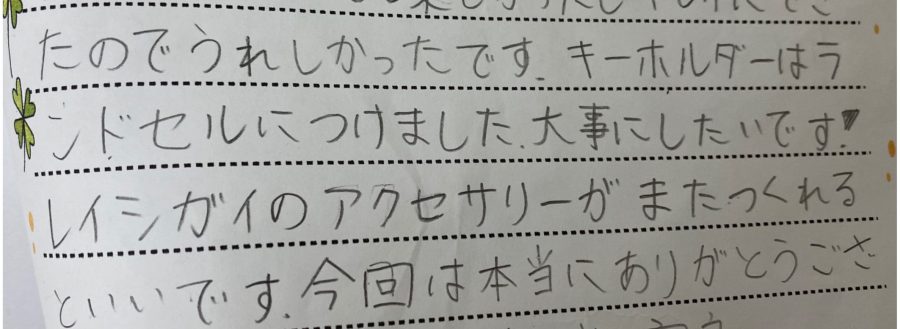 たのでうれしかったです.キーホルダーはラ
ンドセルにつけました.大事にしたいです!
レイシガイのアクセサリーがまたつくれる
といいです.今回は本当にありがとうござ